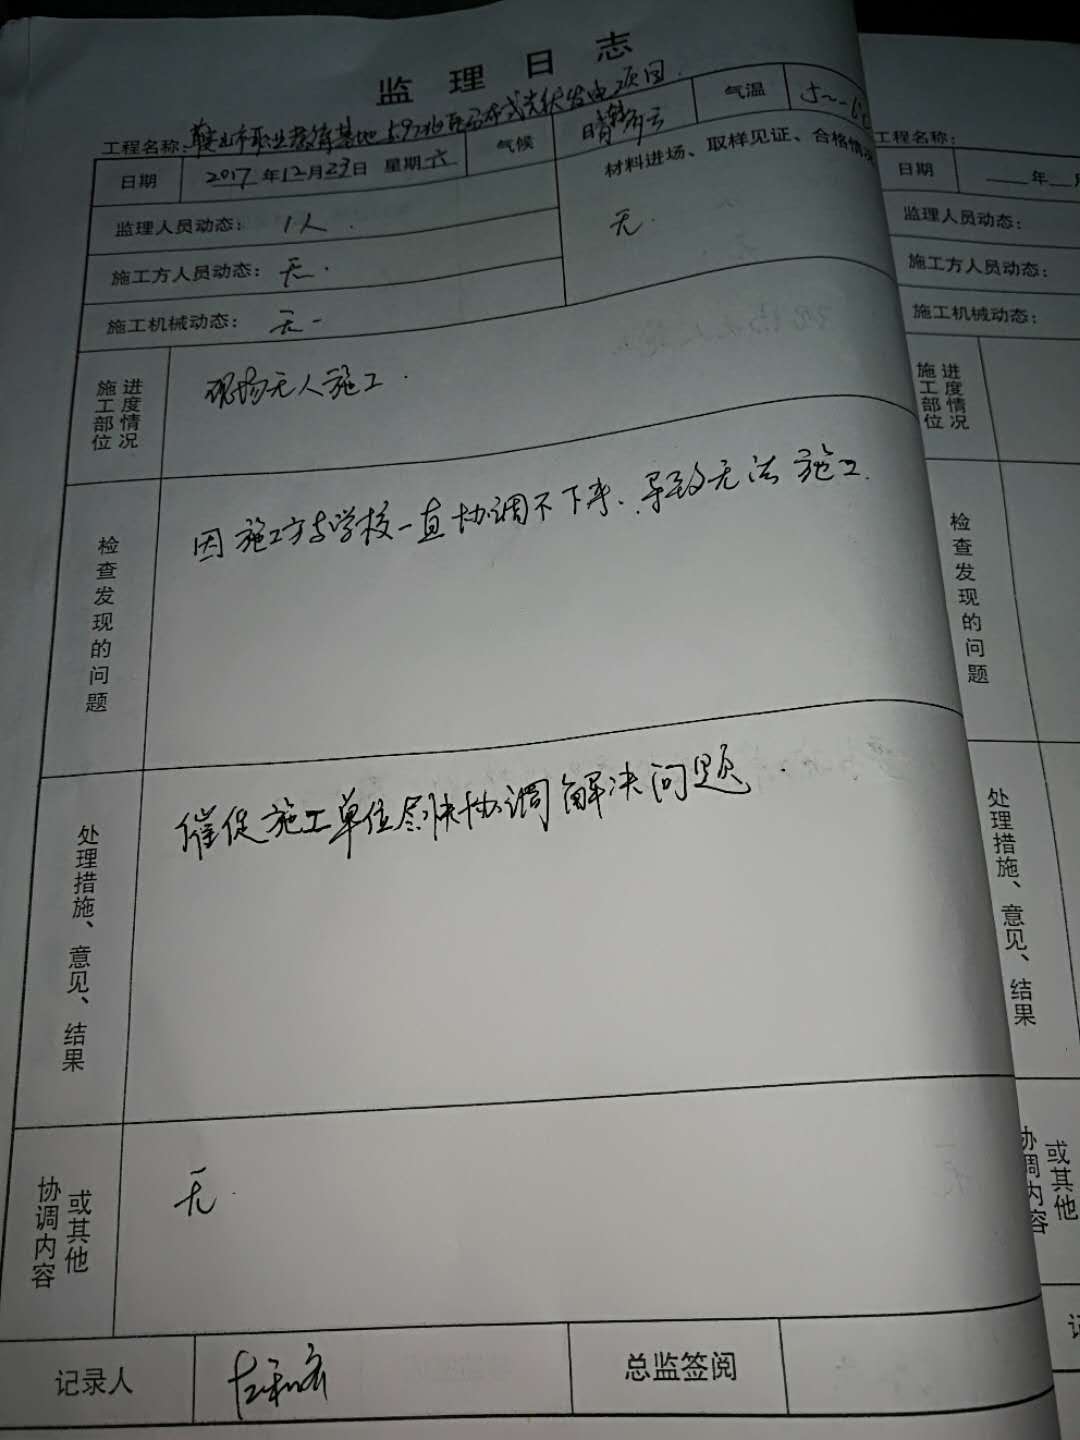 监理日志
工程名称:鞍山市职业教育基地5.97兆瓦分布式光伏发电项目
日期 2017年12月23日 星期六 气候 晴转多云 气温 5~-6℃
监理人员动态: 1人.
材料进场、取样见证、合格情况
无.
施工方人员动态: 无.
施工机械动态: 无-
施工部位 进度情况
现场无人施工.
检查发现的问题
因施工方与学校一直协调不下来、导致无法施工.
处理措施、意见、结果
催促施工单位尽快协调解决问题.
协调内容 或其他
无.
记录人 总监签阅
工程名称:
日期 年 月
监理人员动态:
施工方人员动态:
施工机械动态:
施工部位 进度情况
检查发现的问题
处理措施、意见、结果
协调内容 或其他
记